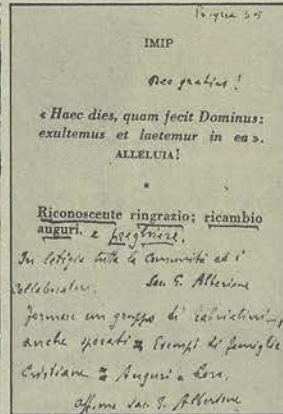 Pasqua
IMIP
Deo gratias!
« Haec dies, quam fecit Dominus:
exultemus et laetemur in ea ».
ALLELUIA!
*
Riconoscente ringrazio; ricambio
auguri. e preghiere.
In letizia tutta la Comunità ed i
Collaboratori. Sac. G. Alberione
Formare un gruppo di
anche sposati Esempi di famiglie
Cristiane Auguri a Loro.
Sac. G. Alberione